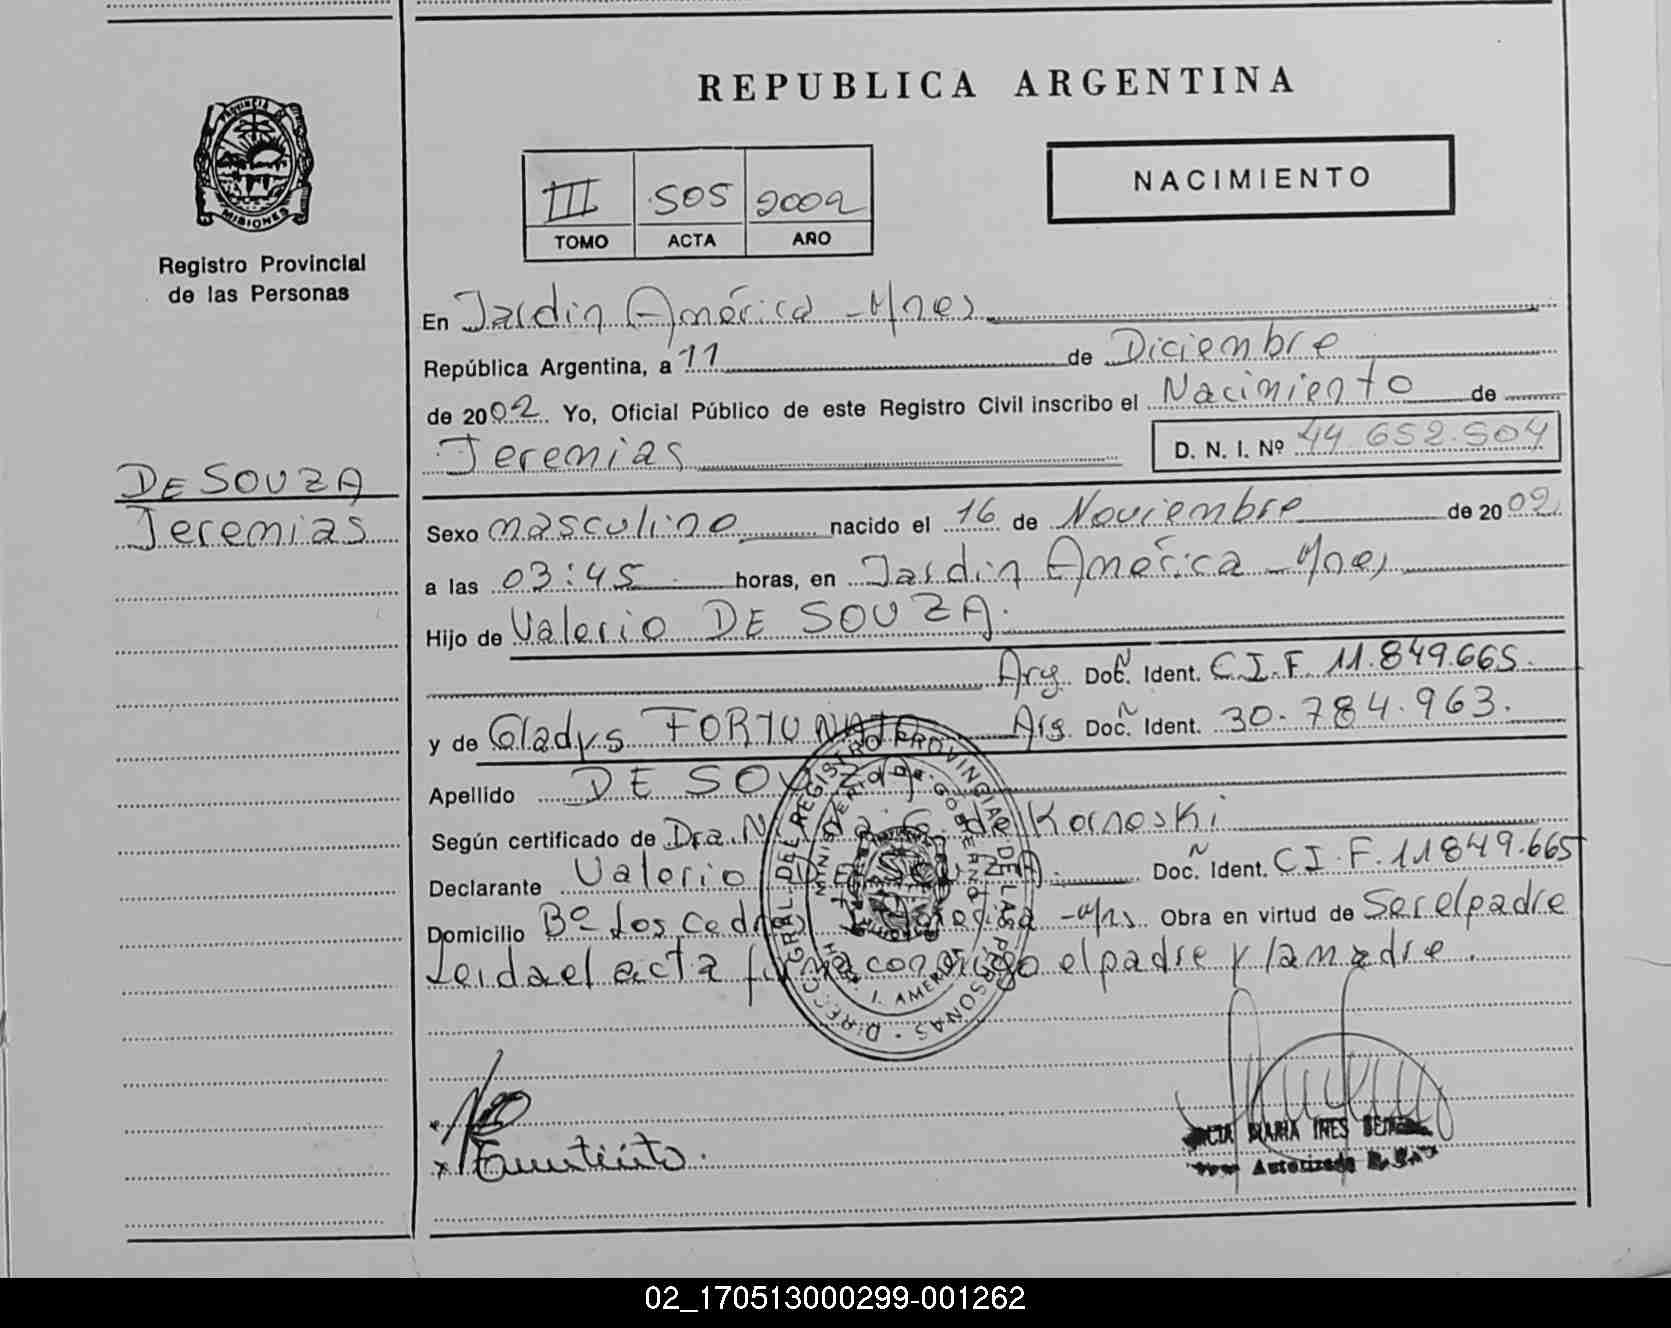 REPUBLICA ARGENTINA
PROVINCIA DE
MISIONES
Registro Provincial
de las Personas
III 505 2002
TOMO ACTA AÑO
NACIMIENTO
En Jardin América - Mnes
República Argentina, a 11 de Diciembre
de 2002 Yo, Oficial Público de este Registro Civil inscribo el Nacimiento de
Jeremias D. N. I. Nº 44.652.504
DE SOUZA
Jeremias
Sexo masculino nacido el 16 de Noviembre de 2002
a las 03:45 horas, en Jardin América - Mnes
Hijo de Valerio DE SOUZA.
Arg. Docñ. Ident. C.I.F. 11.849.665.
y de Gladys FORTUNATO Arg. Docñ. Ident. 30.784.963.
Apellido DE SOUZA
Según certificado de Dra. G. de Kornoski
Declarante Valerio DE SOUZA. Docñ. Ident. C.I.F. 11849.665
Domicilio Bº Los Cedros - Mns. Obra en virtud de Ser el padre
Leida el acta firma conmigo el padre y la madre.
DIRECC. GRAL. DEL REGISTRO PROVINCIAL DE LAS PERSONAS
MINISTERIO DE GOBIERNO
MARIA INES
Autorizada
02_170513000299-001262